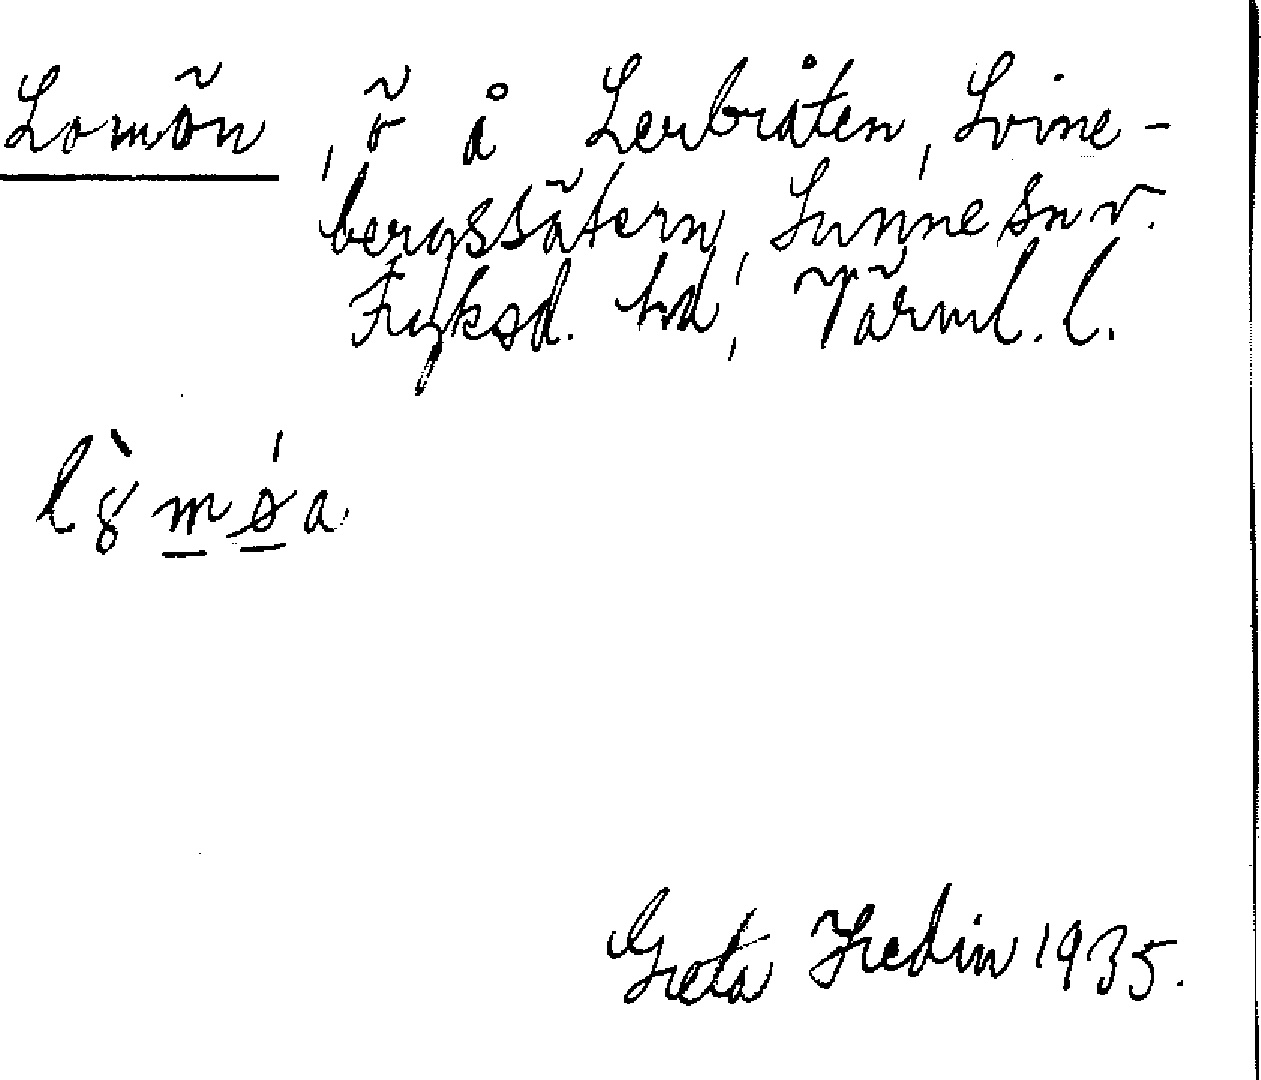 Lomön, ö å Lerbråten, Svine-
bergssätern, Sunne sn v.
Fryksd. hd, Värml. l.
Greta Hedin 1935.